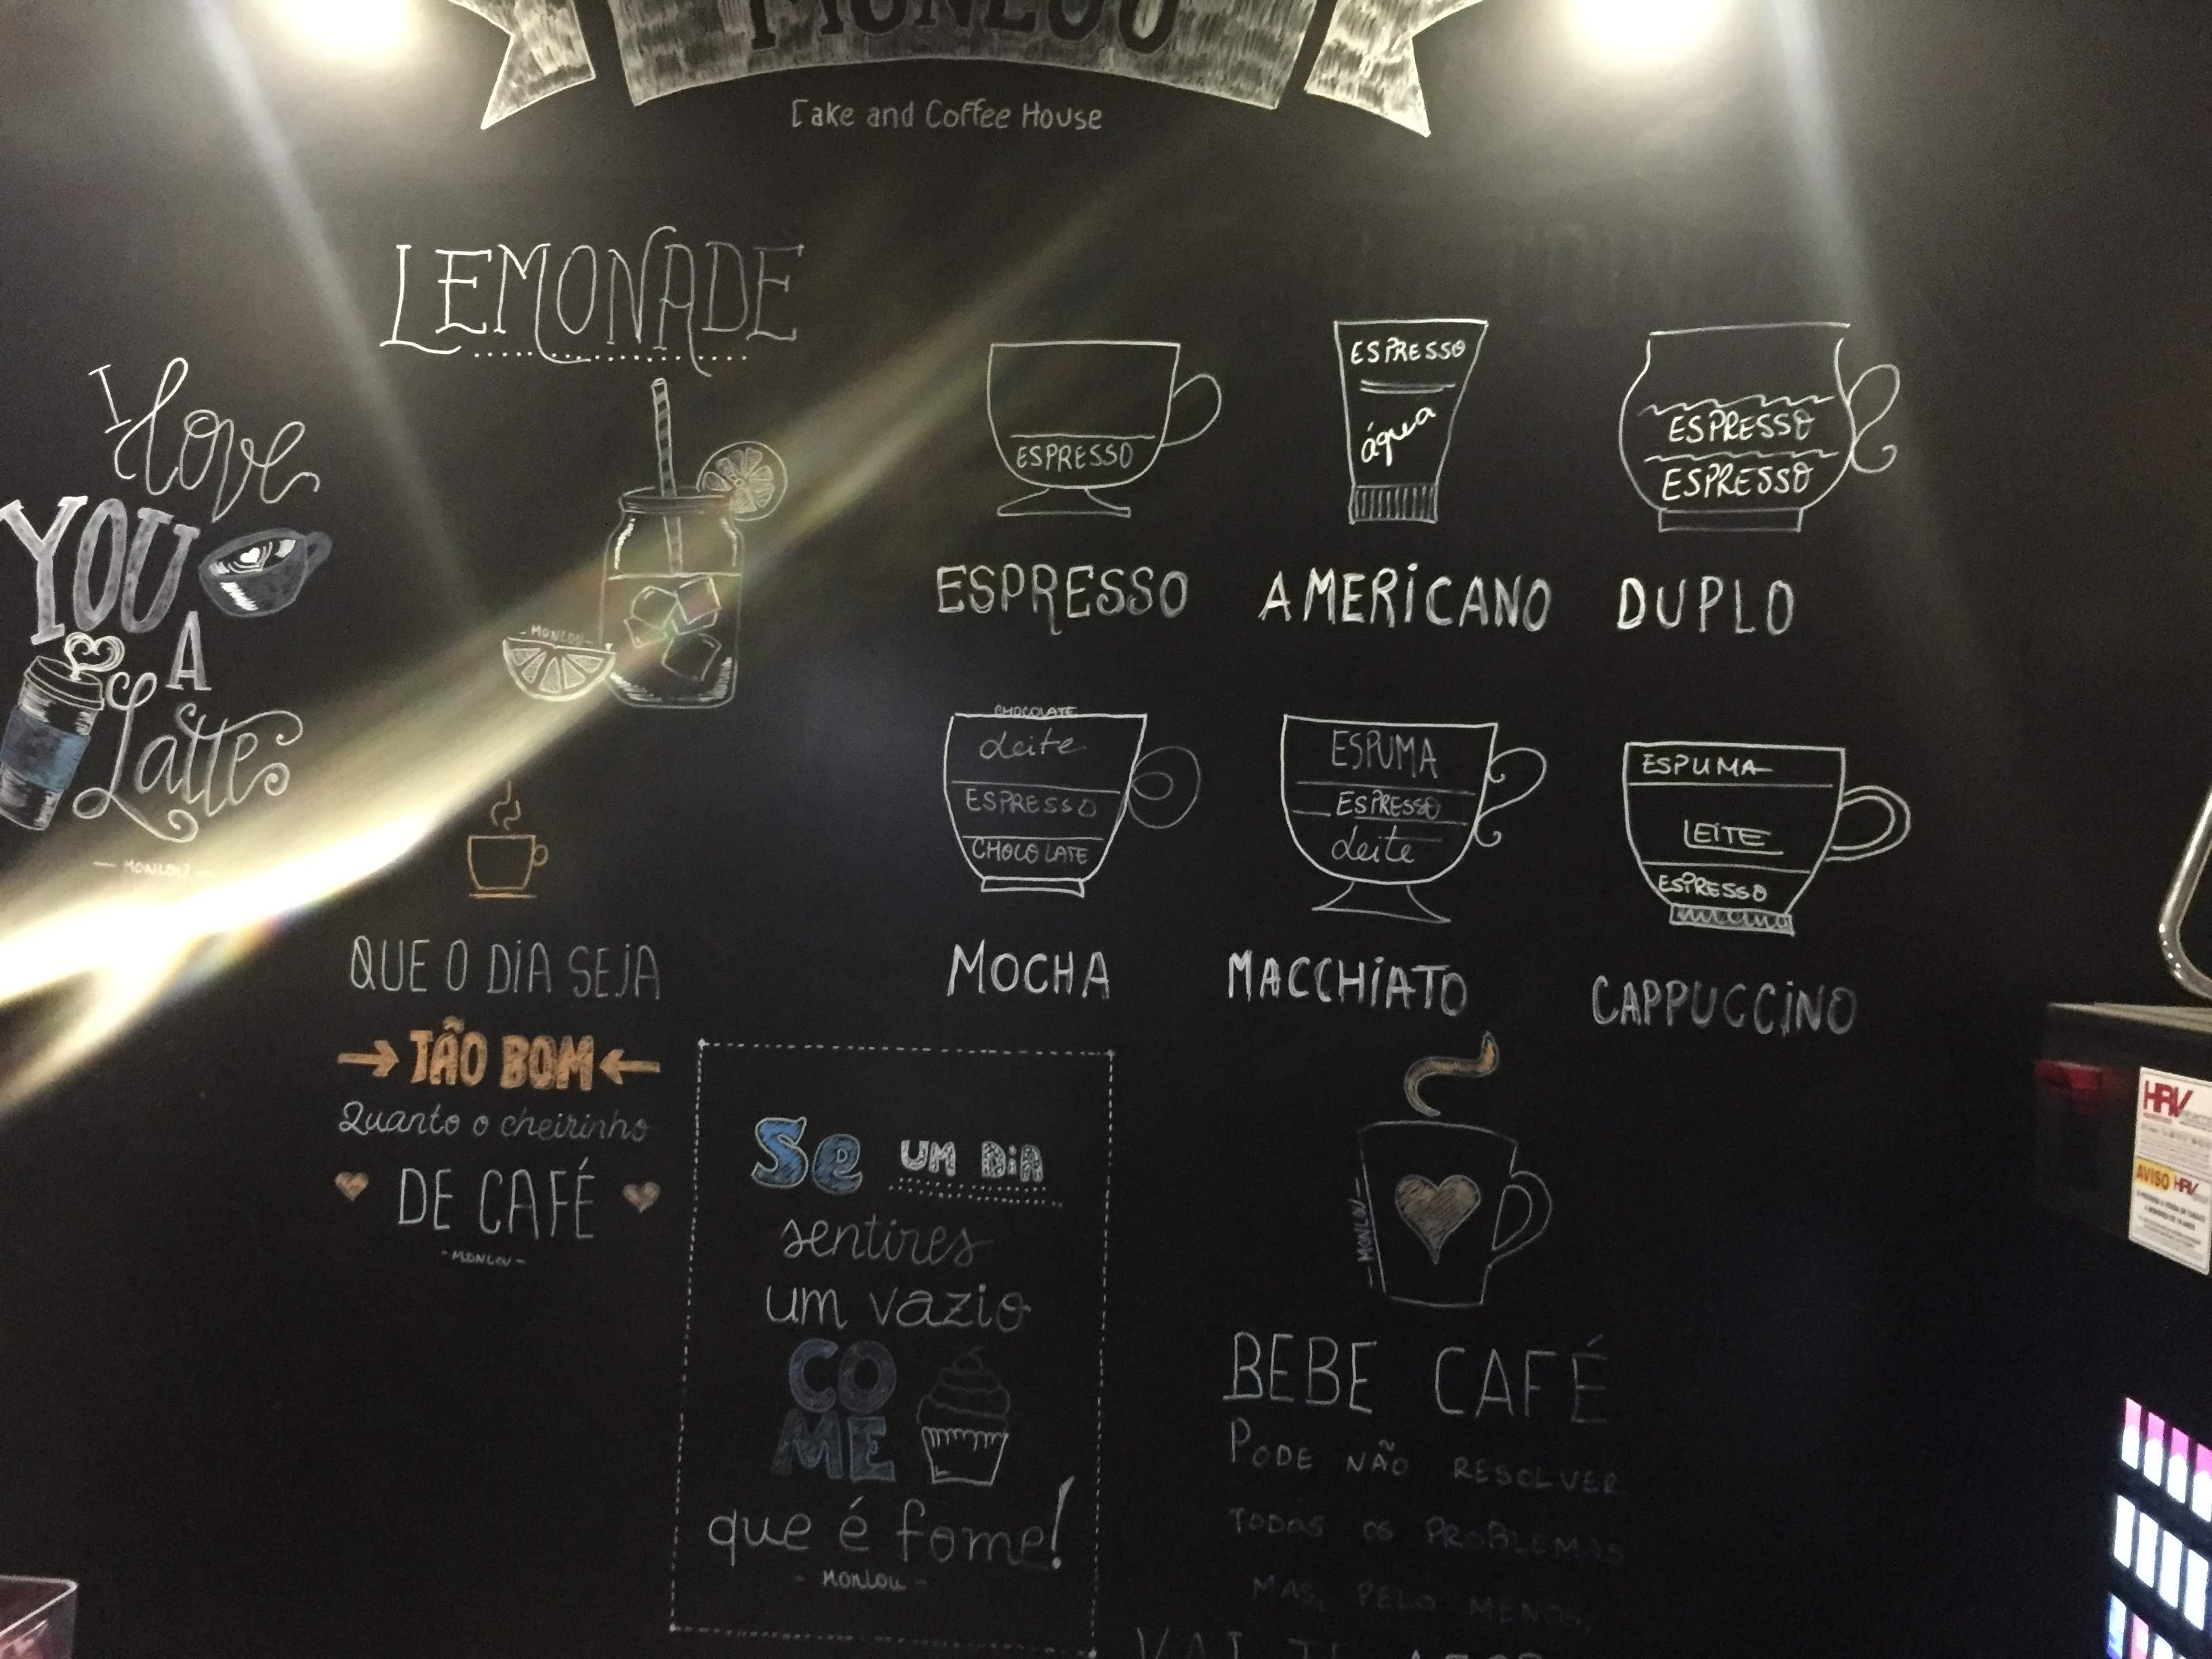 MONLOU
Cake and Coffee House
LEMONADE
- MONLOU -
I love
YOU
A
Latte
- MONLOU -
ESPRESSO
ESPRESSO
ESPRESSO
água
AMERICANO
ESPRESSO
ESPRESSO
DUPLO
CHOCOLATE
Leite
ESPRESSO
CHOCOLATE
MOCHA
ESPUMA
ESPRESSO
Leite
MACCHIATO
ESPUMA
LEITE
ESPRESSO
CAPPUCCINO
QUE O DIA SEJA
TÃO BOM
Quanto o cheirinho
DE CAFÉ
- MONLOU -
Se UM DIA
sentires
um vazio
CO
ME
que é fome!
- MONLOU -
- MONLOU -
BEBE CAFÉ
PODE NÃO RESOLVER
TODOS OS PROBLEMAS
MAS, PELO MENOS,
HRV
AVISO HRV